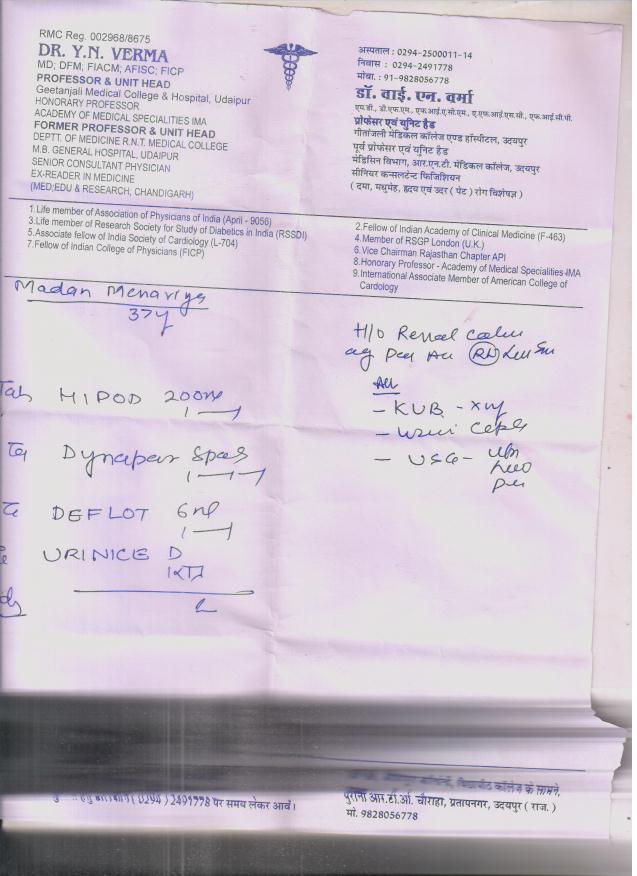 RMC Reg. 002968/8675
DR. Y.N. VERMA
MD; DFM; FIACM; AFISC; FICP
PROFESSOR & UNIT HEAD
Geetanjali Medical College & Hospital, Udaipur
HONORARY PROFESSOR
ACADEMY OF MEDICAL SPECIALITIES IMA
FORMER PROFESSOR & UNIT HEAD
DEPTT. OF MEDICINE R.N.T. MEDICAL COLLEGE
M.B. GENERAL HOSPITAL, UDAIPUR
SENIOR CONSULTANT PHYSICIAN
EX-READER IN MEDICINE
(MED;EDU & RESEARCH; CHANDIGARH)
अस्पताल : 0294-2500011-14
निवास : 0294-2491778
मोबा. : 91-9828056778
डॉ. वाई. एन. वर्मा
एम.डी., डी.एफ.एम., एफ.आई.ए.सी.एम., ए.एफ.आई.एस.सी., एफ.आई.सी.पी.
प्रोफेसर एवं यूनिट हैड
गीतांजली मेडिकल कॉलेज एण्ड हॉस्पीटल, उदयपुर
पूर्व प्रोफेसर एवं यूनिट हैड
मेडिसिन विभाग, आर.एन.टी. मेडिकल कॉलेज, उदयपुर
सीनियर कन्सलटेन्ट फिजिशियन
( दमा, मधुमेह, हृदय एवं उदर ( पेट ) रोग विशेषज्ञ )
1.Life member of Association of Physicians of India (April - 9056)
3.Life member of Research Society for Study of Diabetics in India (RSSDI)
5.Associate fellow of India Society of Cardiology (L-704)
7.Fellow of Indian College of Physicians (FICP)
2.Fellow of Indian Academy of Clinical Medicine (F-463)
4.Member of RSGP London (U.K.)
6.Vice Chairman Rajasthan Chapter API
8.Honorary Professor - Academy of Medical Specialities-IMA
9.International Associate Member of American College of
Cardiology
Madan Menariya
37y
H/o Renal
Tab HIPOD 200
1 — 1
Dynapar Spas
1 — 1 — 1
DEFLOT 6
1 — 1
URINICE D
- KUB -
-
- USG -
( 0294 ) 2491778 पर समय लेकर आवें।
कॉलेज के सामने,
पुराना आर.टी.ओ. चौराहा, प्रतापनगर, उदयपुर ( राज. )
मो. 9828056778